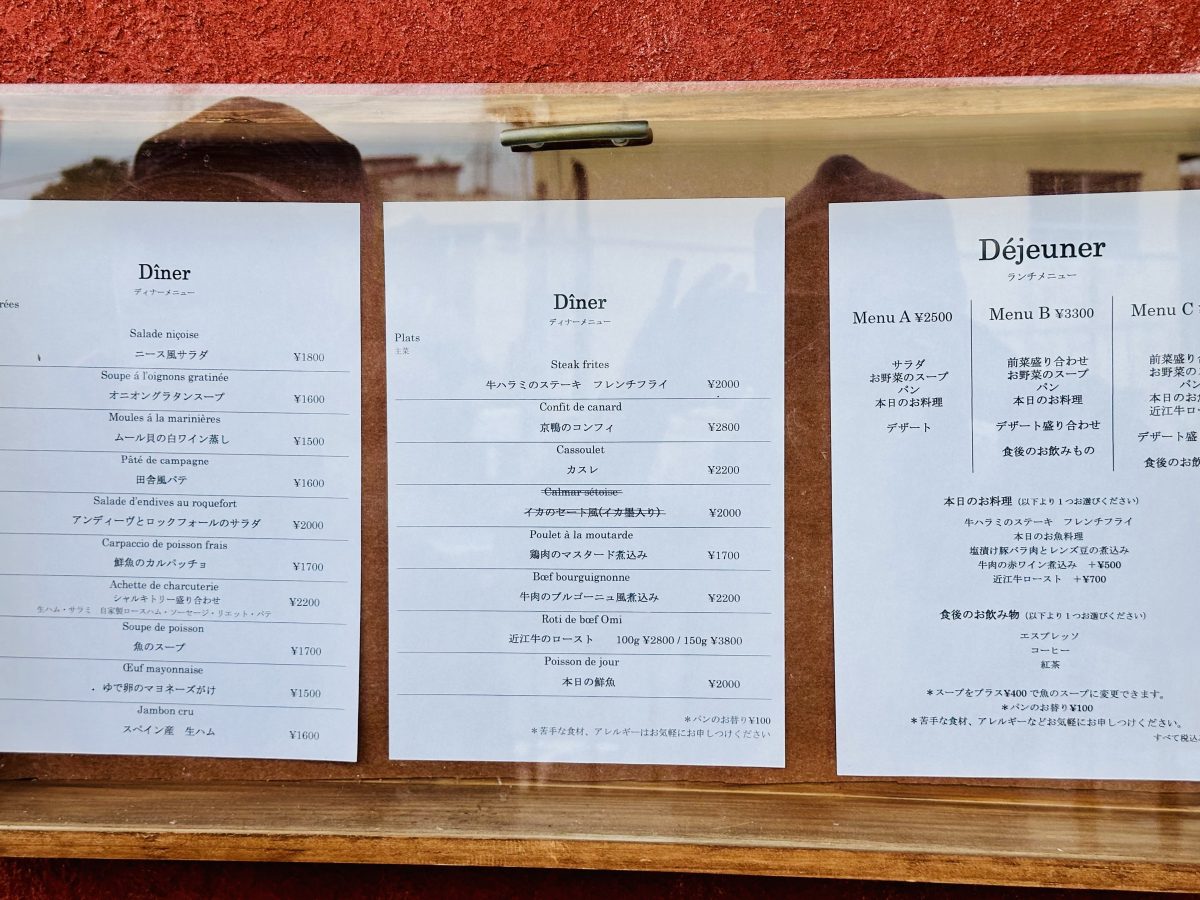 Dîner
ディナーメニュー
rées
Salade niçoise
ニース風サラダ ¥1800
Soupe á l'oignons gratinée
オニオングラタンスープ ¥1600
Moules á la marinières
ムール貝の白ワイン蒸し ¥1500
Pâté de campagne
田舎風パテ ¥1600
Salade d'endives au roquefort
アンディーヴとロックフォールのサラダ ¥2000
Carpaccio de poisson frais
鮮魚のカルパッチョ ¥1700
Achette de charcuterie
シャルキトリー盛り合わせ ¥2200
生ハム・サラミ 自家製ロースハム・ソーセージ・リエット・パテ
Soupe de poisson
魚のスープ ¥1700
Œuf mayonnaise
ゆで卵のマヨネーズがけ ¥1500
Jambon cru
スペイン産 生ハム ¥1600
Dîner
ディナーメニュー
Plats
主菜
Steak frites
牛ハラミのステーキ フレンチフライ ¥2000
Confit de canard
京鴨のコンフィ ¥2800
Cassoulet
カスレ ¥2200
Calmar sétoise
イカのセート風(イカ墨入り) ¥2000
Poulet à la moutarde
鶏肉のマスタード煮込み ¥1700
Bœf bourguignonne
牛肉のブルゴーニュ風煮込み ¥2200
Roti de bœf Omi
近江牛のロースト 100g ¥2800 / 150g ¥3800
Poisson de jour
本日の鮮魚 ¥2000
＊パンのお替り¥100
＊苦手な食材、アレルギーはお気軽にお申しつけください
Déjeuner
ランチメニュー
Menu A ¥2500
サラダ
お野菜のスープ
パン
本日のお料理
デザート
Menu B ¥3300
前菜盛り合わせ
お野菜のスープ
パン
本日のお料理
デザート盛り合わせ
食後のお飲みもの
Menu C
前菜盛り合
お野菜のス
パン
本日のお
近江牛ロー
デザート盛
食後のお飲
本日のお料理（以下より１つお選びください）
牛ハラミのステーキ フレンチフライ
本日のお魚料理
塩漬け豚バラ肉とレンズ豆の煮込み
牛肉の赤ワイン煮込み ＋¥500
近江牛ロースト ＋¥700
食後のお飲み物（以下より１つお選びください）
エスプレッソ
コーヒー
紅茶
＊スープをプラス¥400 で魚のスープに変更できます。
＊パンのお替り¥100
＊苦手な食材、アレルギーなどお気軽にお申しつけください。
すべて税込